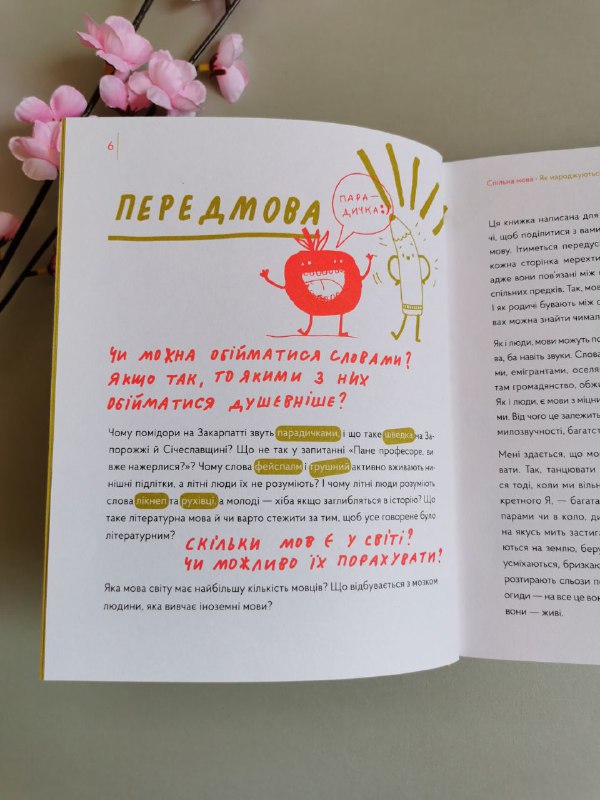 6
ПЕРЕДМОВА
ПАРА-
ДИЧКА!
ЧИ МОЖНА ОБІЙМАТИСЯ СЛОВАМИ?
ЯКЩО ТАК, ТО ЯКИМИ З НИХ
ОБІЙМАТИСЯ ДУШЕВНІШЕ?
Чому помідори на Закарпатті звуть парадичками, і що таке шведка на За-
порожжі й Січеславщині? Що не так у запитанні «Пане професоре, ви
вже нажерлися?»? Чому слова фейспалм і трушний активно вживають ни-
нішні підлітки, а літні люди їх не розуміють? І чому літні люди розуміють
слова лікнеп та рухівці, а молоді — хіба якщо заглибляться в історію? Що
таке літературна мова й чи варто стежити за тим, щоб усе говорене було
літературним?
СКІЛЬКИ МОВ Є У СВІТІ?
ЧИ МОЖЛИВО ЇХ ПОРАХУВАТИ?
Яка мова світу має найбільшу кількість мовців? Що відбувається з мозком
людини, яка вивчає іноземні мови?
Спільна мова • Як народжуються
Ця книжка написана для
чі, щоб поділитися з вами
мову. Ітиметься передус
кожна сторінка мерехти
адже вони пов'язані між
спільних предків. Так, мов
І як родичі бувають між с
вах можна знайти чимал
Як і люди, мови можуть по
ва, ба навіть звуки. Слова
ми, емігрантами, оселя
там громадянство, обжи
Як і люди, є мови з міцни
ми. Від чого це залежить
милозвучність, багатст
Мені здається, що мо
вати. Так, танцювати
ся тоді, коли ми вільн
кретного Я, — багата
парами чи в коло, ди
на якусь мить застиг
ються на землю, беру
усміхаються, бризкаю
розтирають сльози по
огиди — на все це вон
вони — живі.